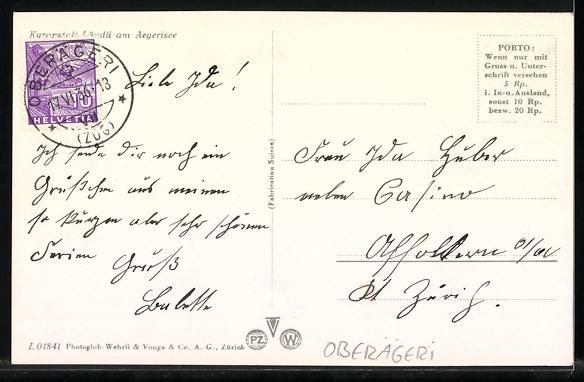 Kurorstalt Ländli am Aegerisee
OBERÄGERI
17.VI.36.-13
(ZUG)
10
HELVETIA
Liebe Ida!
Ich sende dir noch ein
Grüßchen aus meinen
so kurzen aber sehr schönen
Ferien Gruß
Babette
L 01841 Photoglob-Wehrli & Vouga & Co. A. G., Zürich
PZ W
(Fabrication Suisse)
PORTO:
Wenn nur mit
Gruss u. Unter-
schrift versehen
5 Rp.
i. In- u. Ausland,
sonst 10 Rp.
bezw. 20 Rp.
Frau Ida Huber
neben Casino
Affoltern a/A
Kt Zürich.
OBERÄGERI